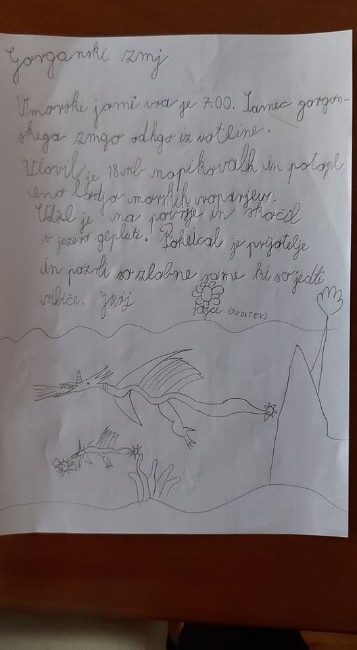 Gorganski zmj
V morski jami ura je 7.00. Samec gorgon-
skega zmga odhgo iz votline.
Ulovil je 18 rib napikovalk in potopl
eno ladjo morskih roparjev.
Udal je na površje in skočil
v jezero geplate. Poklical je prijatelje
in požrli so zlobne some ki so jedli
ribice. Jurij
(DODATEK)